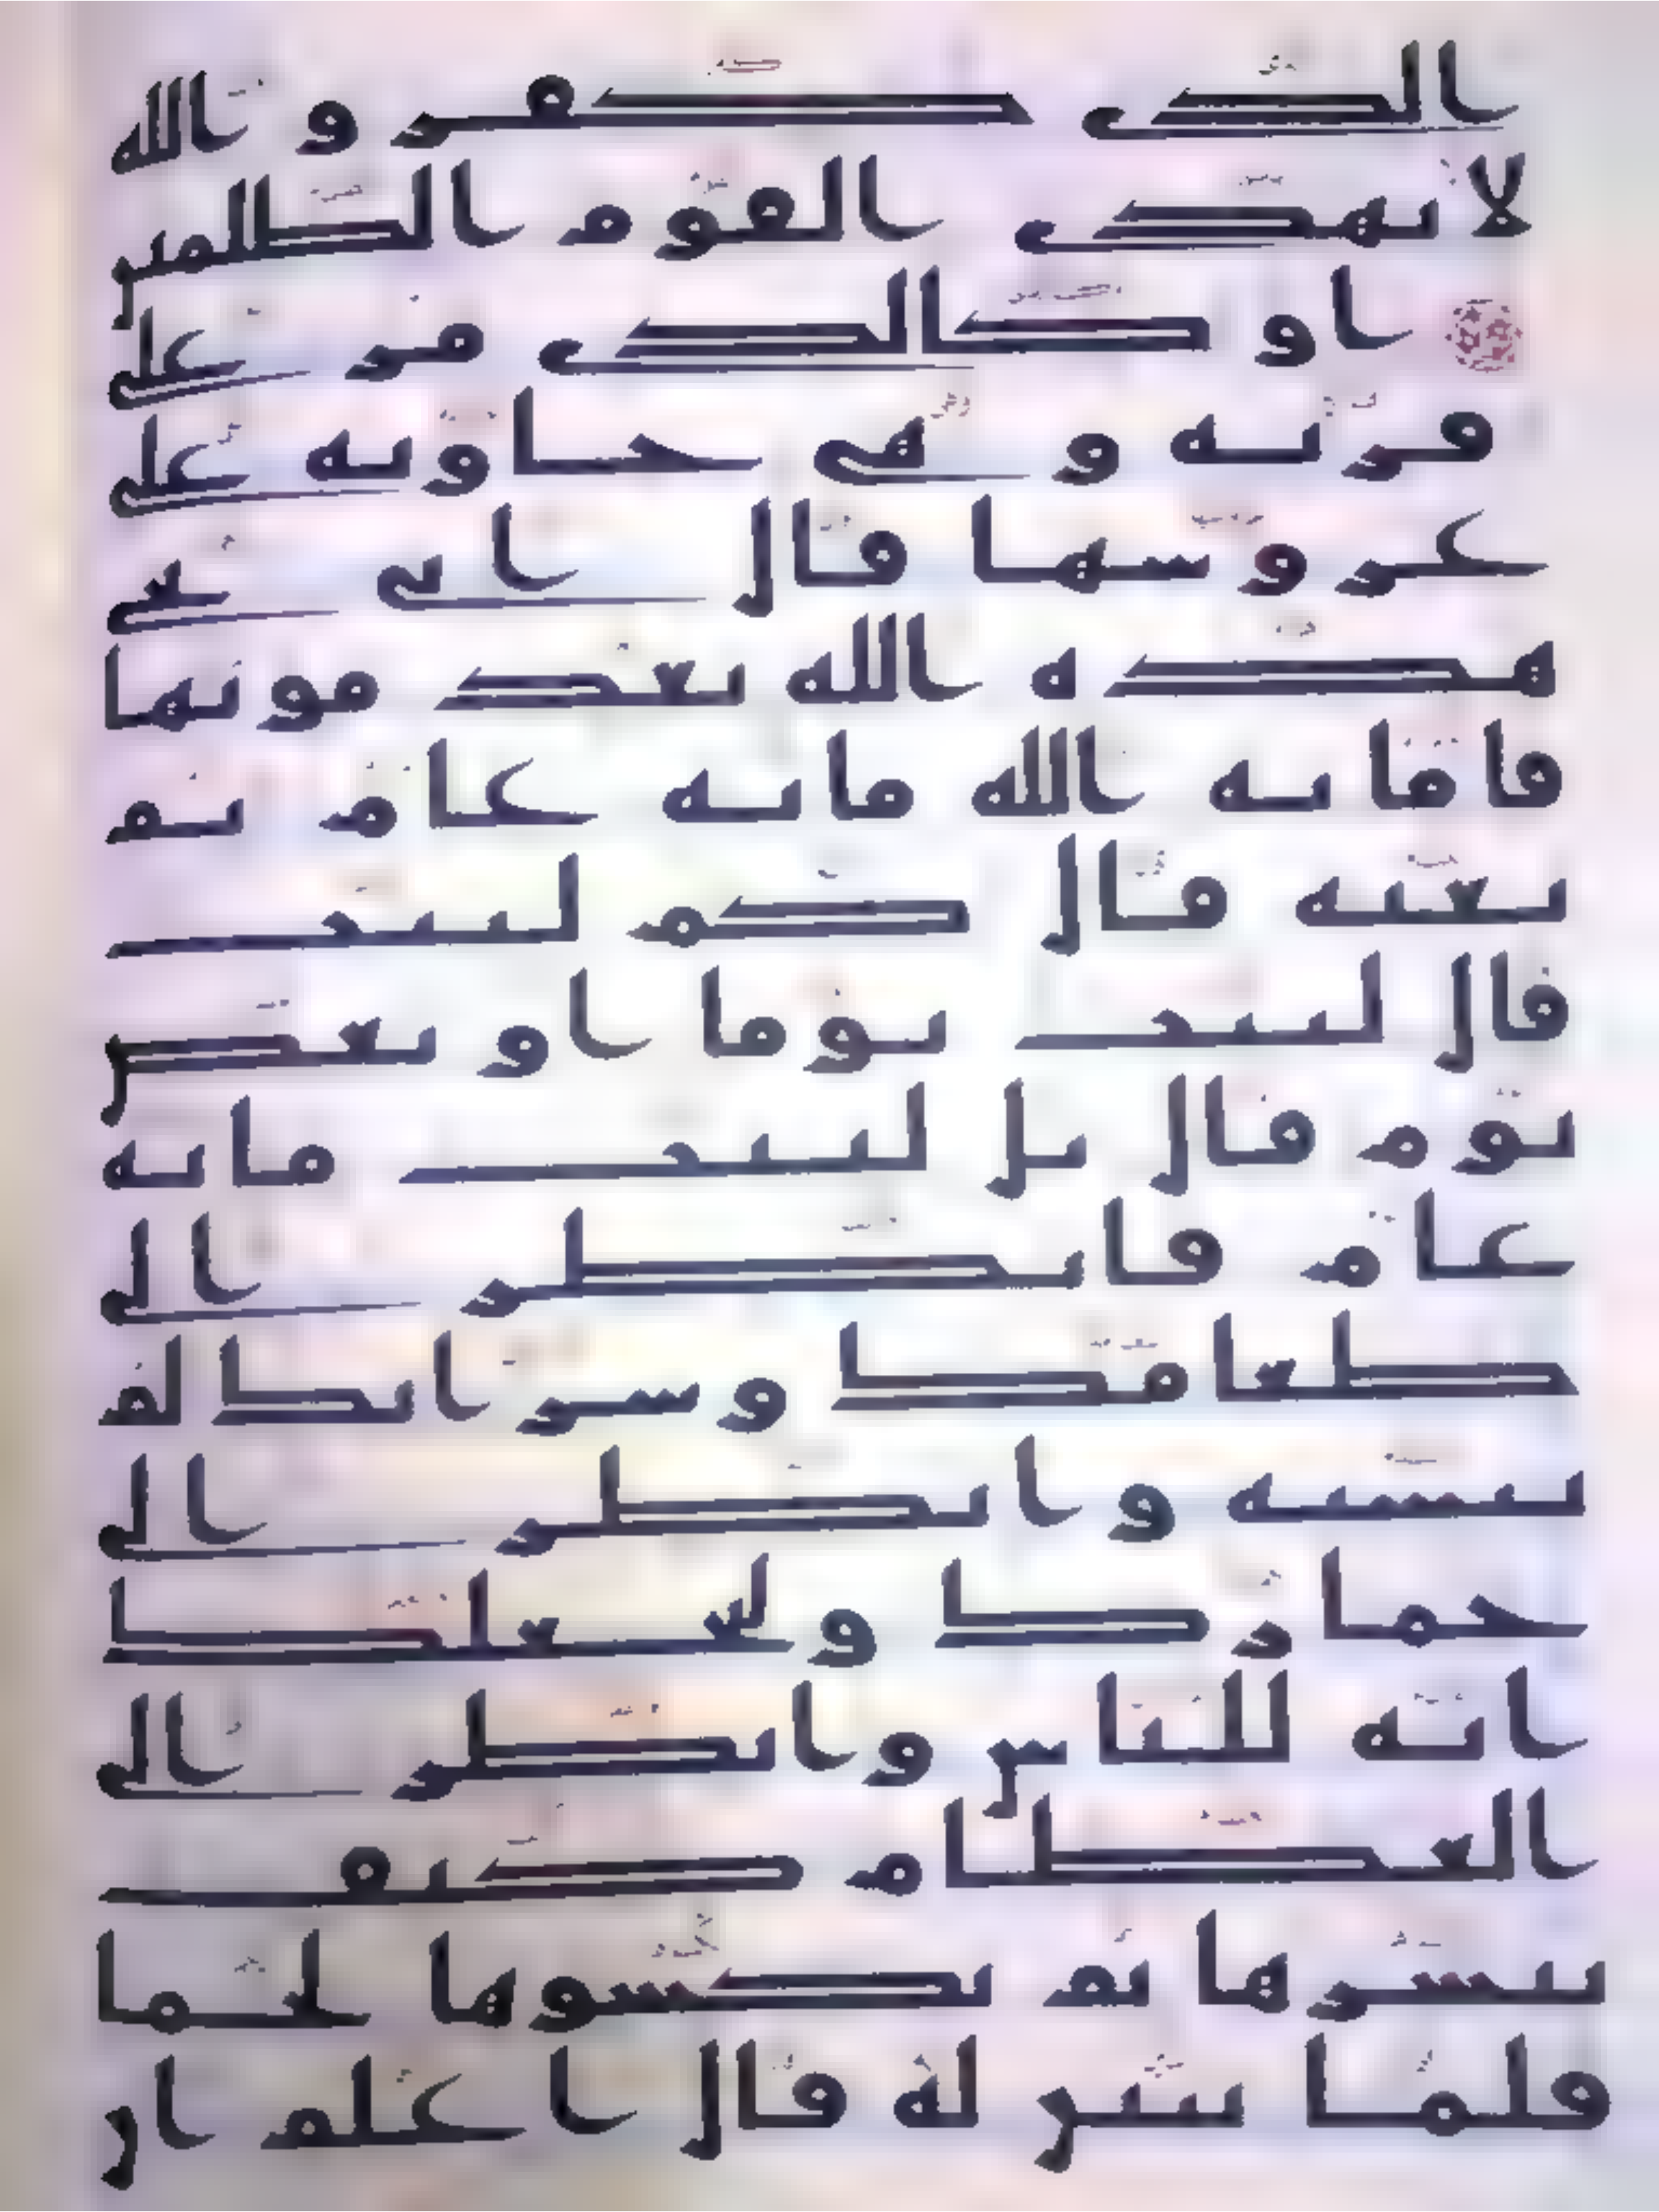 الذى كفر و الله
لا يهدى القوم الظلمين
او كالذى مر على
قرية و هى خاوية على
عروشها قال انى يحى
هذه الله بعد موتها
فاماته الله مائة عام ثم
بعثه قال كم لبثت
قال لبثت يوما او بعض
يوم قال بل لبثت مائة
عام فانظر الى
طعامك وشرابك لم
يتسنه وانظر الى
حمارك ولنجعلك
اية للناس وانظر الى
العظام كيف
ننشزها ثم نكسوها لحما
فلما تبين له قال اعلم ان